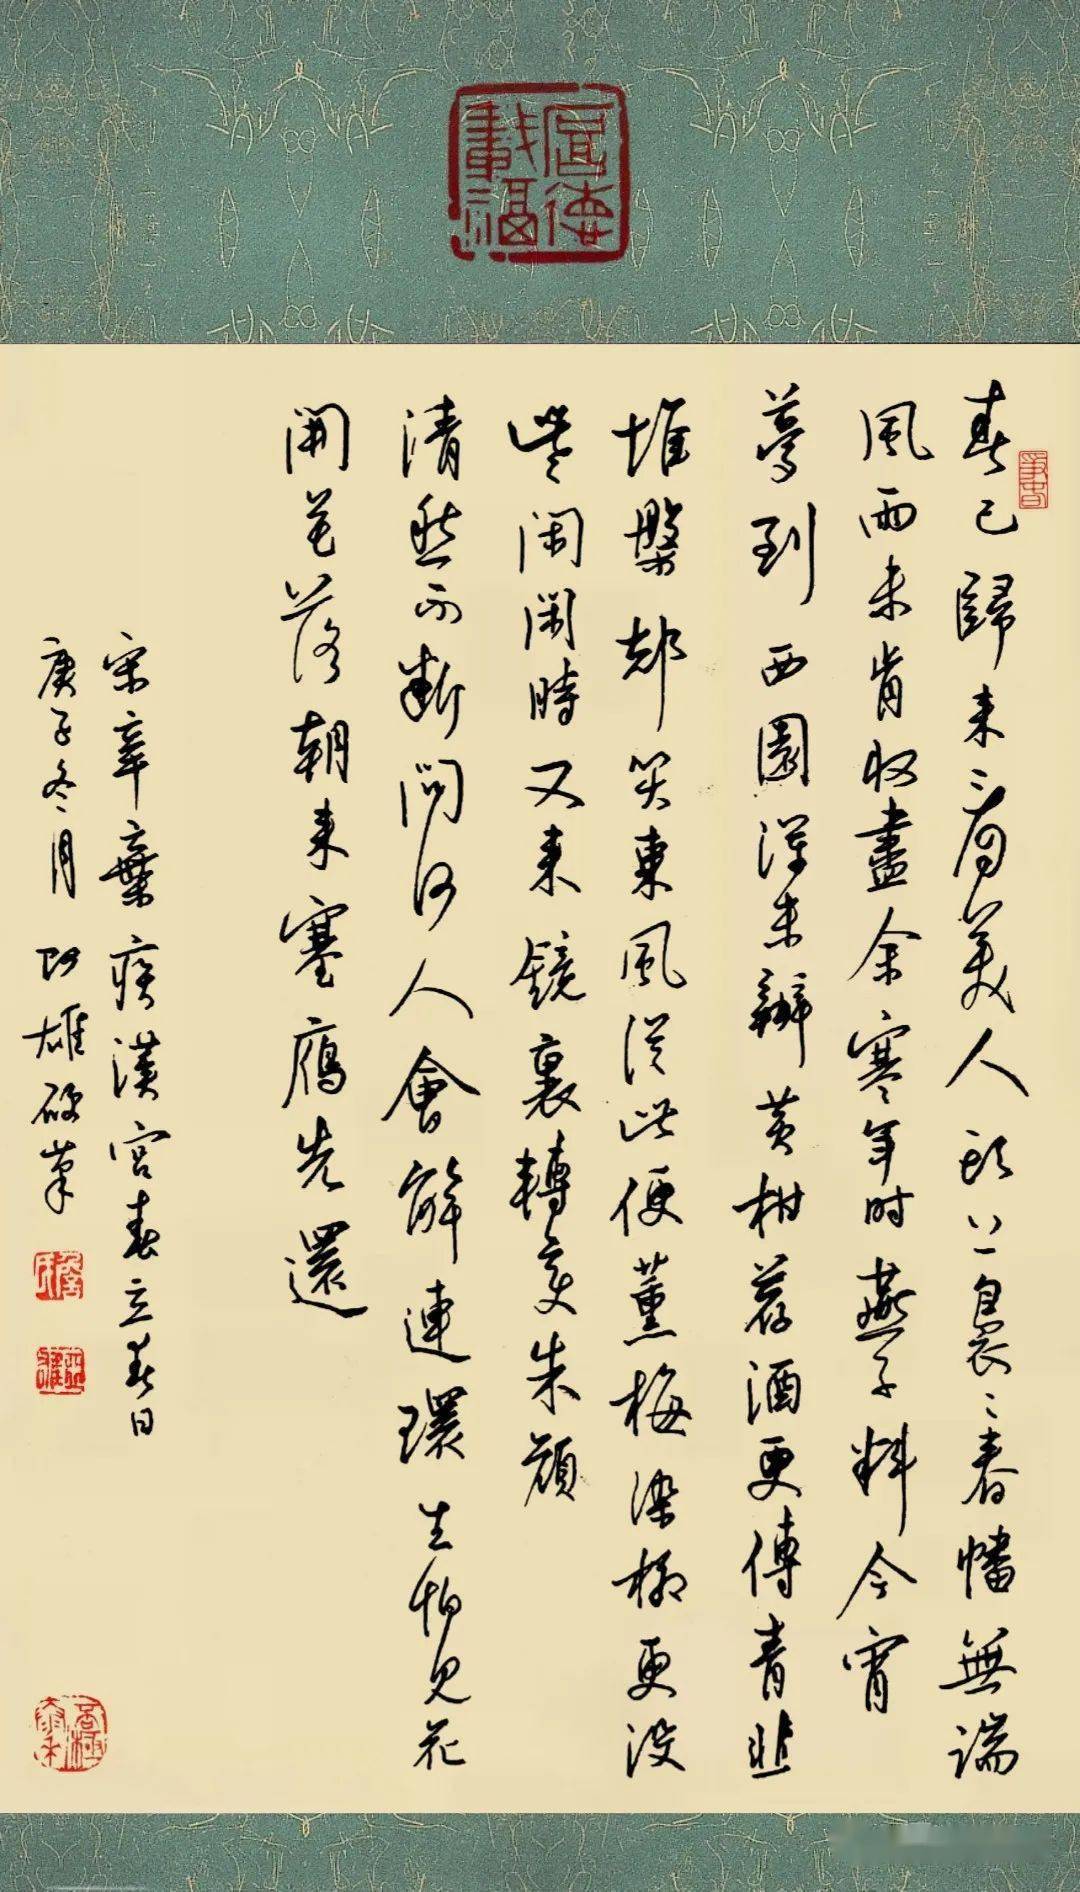 厚德載福
春已歸来看美人頭上裊〻春幡無端
風雨未肯收盡余寒年时燕子料今宵
夢到西園渾未辦黄柑荐酒更傳青韭
堆盤却笑東風從此便薰梅染柳更没
些闲闲時又来鏡裏轉变朱顔
清愁不断問何人會解連環生怕見花
開花落朝来塞雁先還
宋辛棄疾漢宫春立春日
庚子冬月雄硬筆